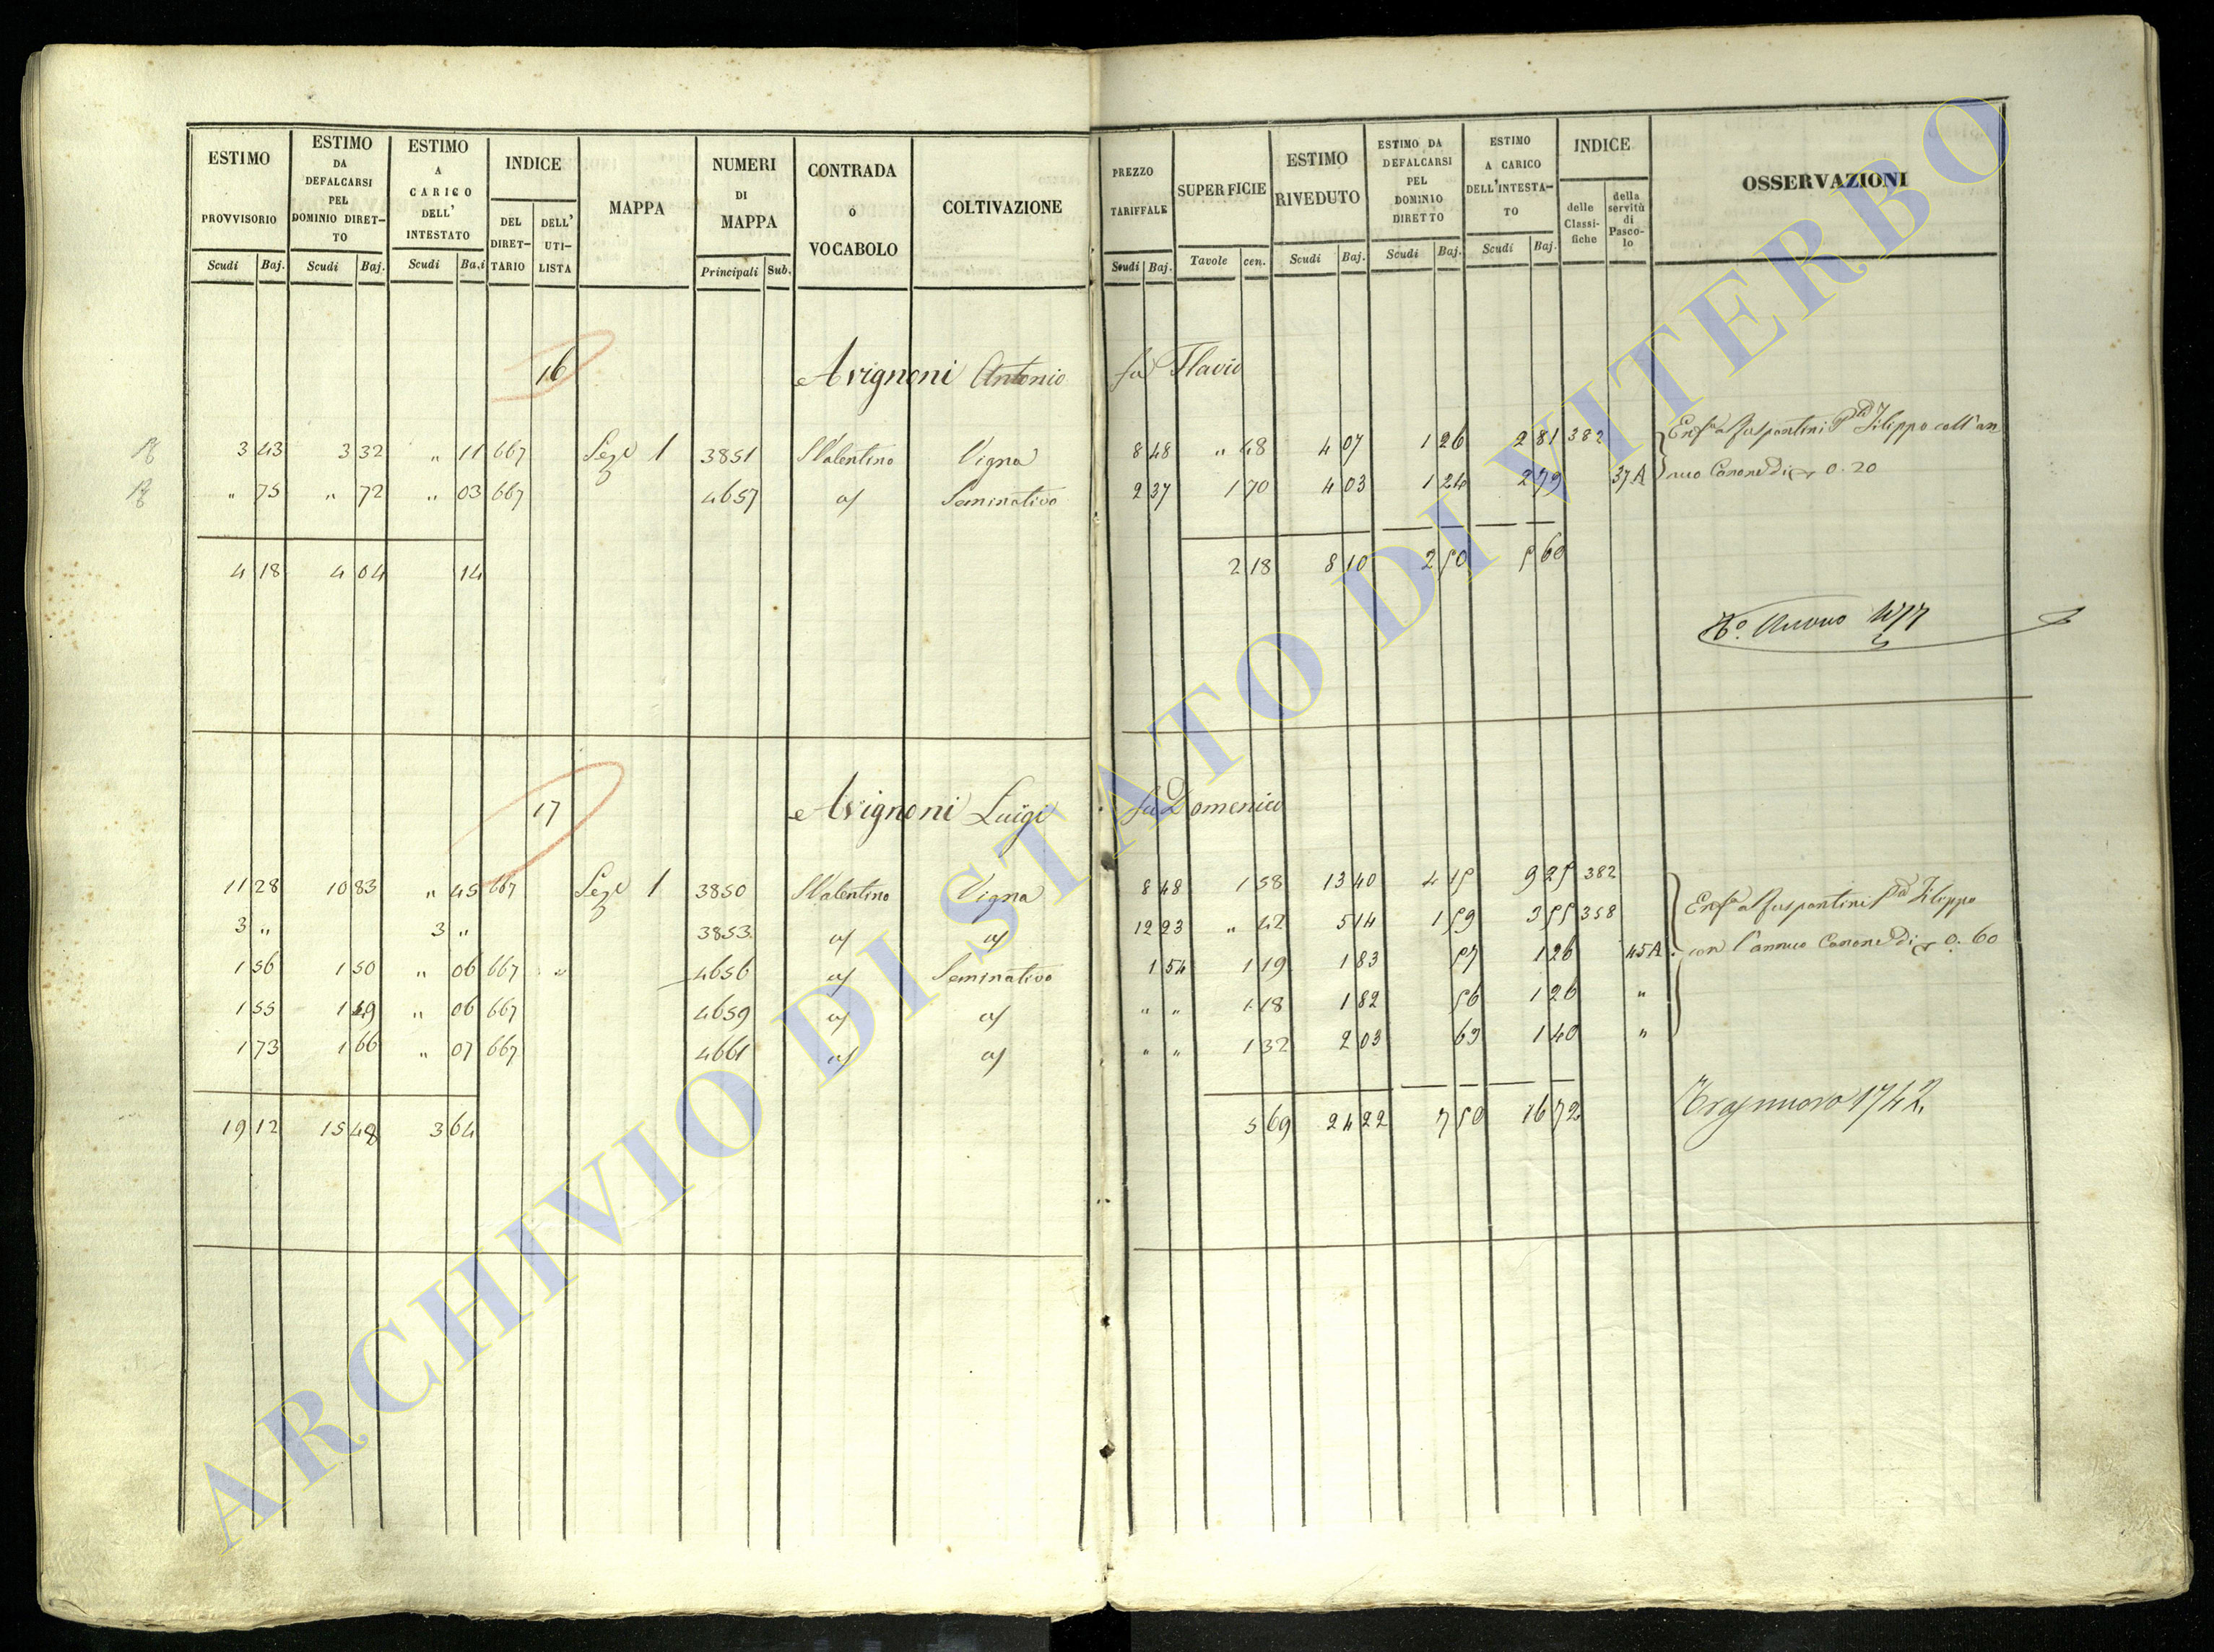 ESTIMO PROVVISORIO
Scudi Baj.
ESTIMO DA DEFALCARSI PEL DOMINIO DIRET-TO
Scudi Baj.
ESTIMO A CARICO DELL' INTESTATO
Scudi Ba.i
INDICE
DEL DIRET-TARIO
DELL' UTI-LISTA
MAPPA
NUMERI DI MAPPA
Principali Sub.
CONTRADA O VOCABOLO
COLTIVAZIONE
PREZZO TARIFFALE
Scudi Baj.
SUPERFICIE
Tavole cen.
ESTIMO RIVEDUTO
Scudi Baj.
ESTIMO DA DEFALCARSI PEL DOMINIO DIRETTO
Scudi Baj.
ESTIMO A CARICO DELL'INTESTA-TO
Scudi Baj.
INDICE
delle Classi-fiche
della servitù di Pasco-lo
OSSERVAZIONI
16 Avignoni Antonio fu Flavio
3 43 3 32 " 11 667 Seze 1 3851 S Valentino Vigna 8 48 " 48 4 07 1 26 2 81 382
" 75 " 72 " 03 667 4657 a/ Seminativo 2 37 1 70 4 03 1 24 2 79 37A
Filippo coll'an
nuo Canone di 0.20
4 18 4 04 14 2 18 8 10 2 50 5 60
17 Avignoni Luigi fu Domenico
11 28 10 83 " 45 667 Seze 1 3850 S Valentino Vigna 8 48 1 58 13 40 4 15 9 25 382
3 " 3 " 3853 a/ a/ 12 23 " 42 5 14 1 59 3 55 358
1 56 1 50 " 06 667 " 4656 a/ Seminativo 1 54 1 19 1 83 57 1 26 45A
1 55 1 49 " 06 667 4659 a/ a/ " " 1 18 1 82 56 1 26 "
1 73 1 66 " 07 667 4661 a/ a/ " " 1 32 2 03 63 1 40 "
Filippo
con l'annuo Canone di 0.60
19 12 15 48 3 64 5 69 24 22 7 50 16 72
1742
ARCHIVIO DI STATO DI VITERBO